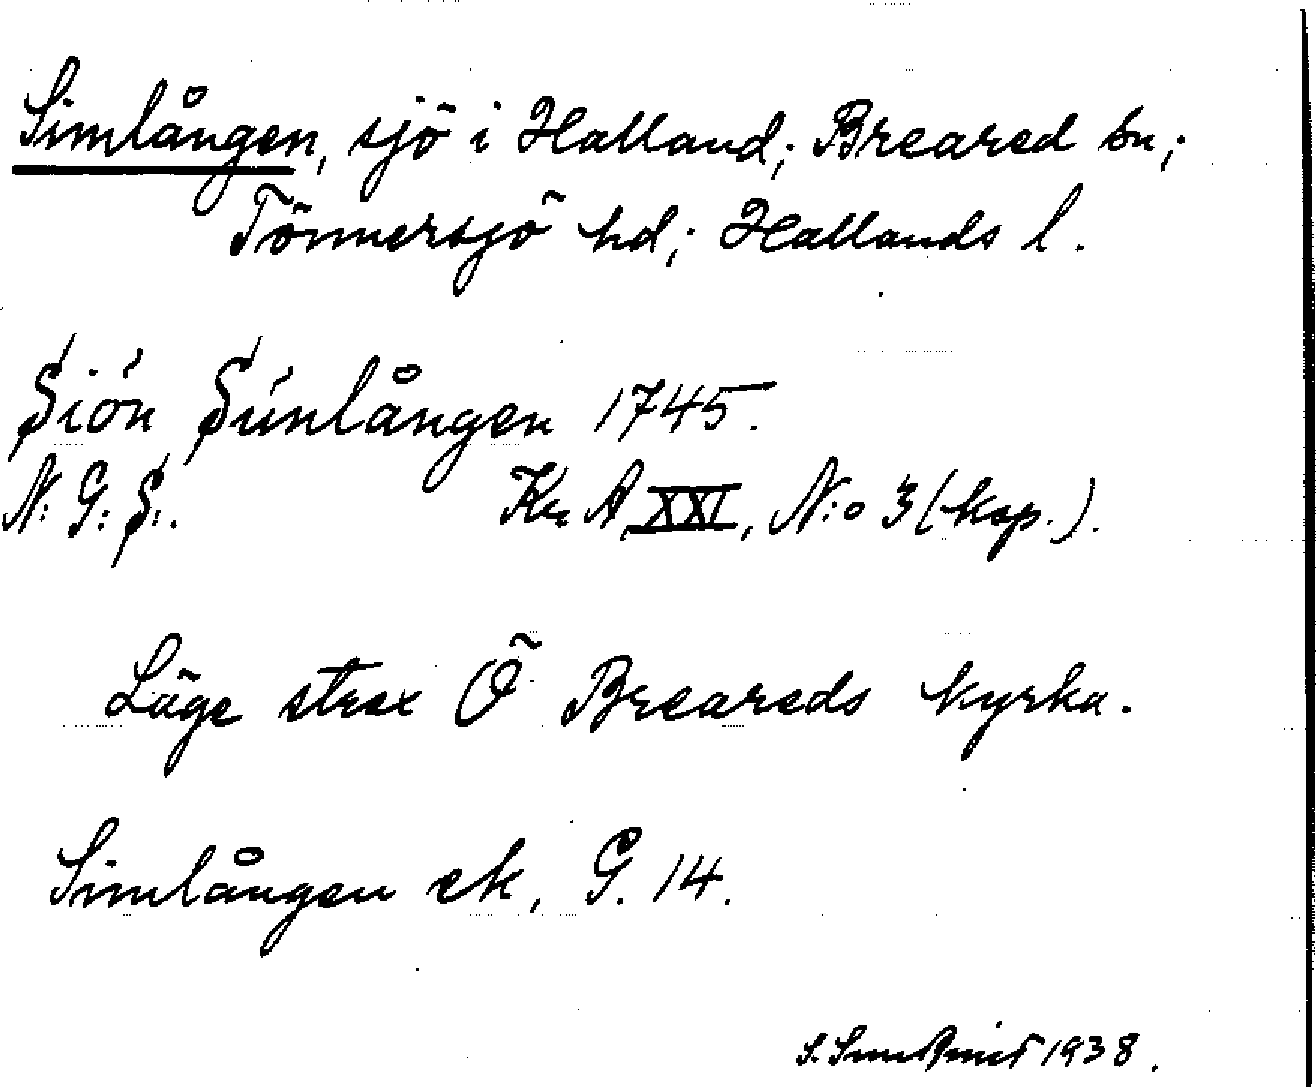 Simlången, sjö i Halland; Breared sn;
Tönnersjö hd; Hallands l.
Siön Simlången 1745.
N: G: S:. Kr. A XXI, N:o 3 (ksp.).
Läge strax Ö Breareds kyrka.
Simlången ek, G. 14.
S. 1938.